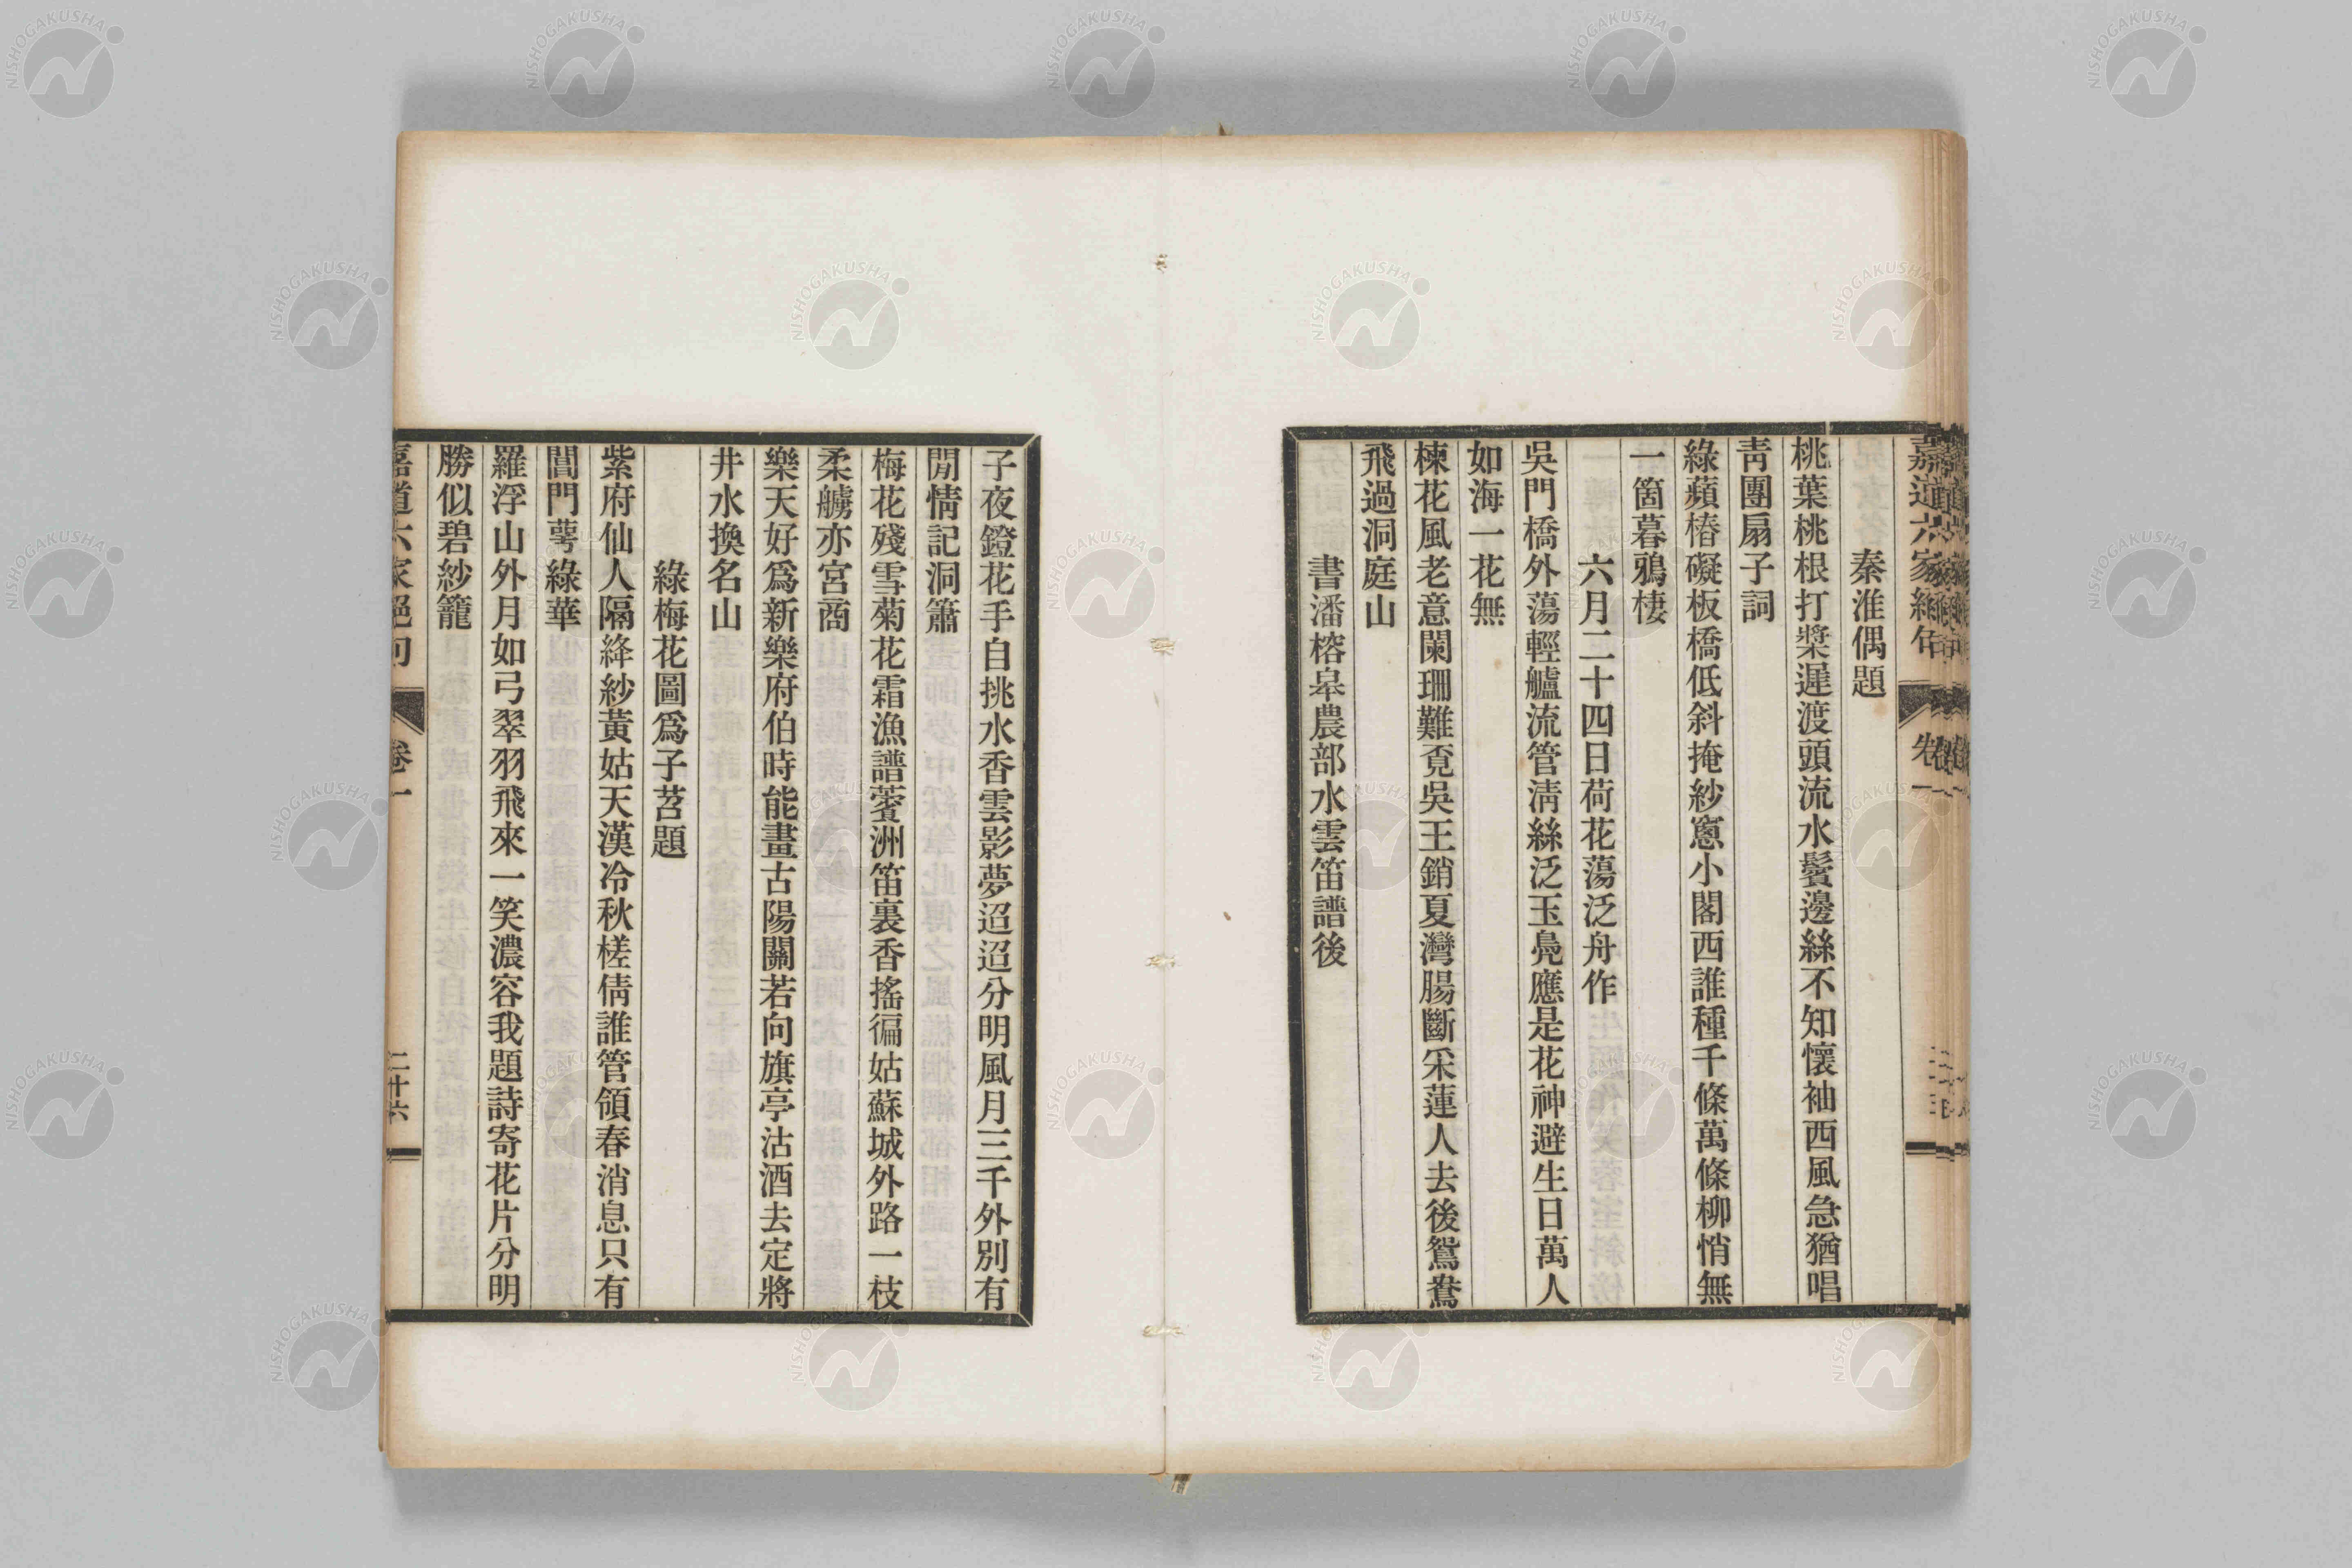 秦淮偶題
桃葉桃根打槳遲渡頭流水鬢邊絲不知懷袖西風急猶唱
靑團扇子詞
綠蘋樁礙板橋低斜掩紗窻小閣西誰種千條萬條柳悄無
一箇暮鴉棲
六月二十四日荷花蕩泛舟作
吳門橋外蕩輕艫流管淸絲泛玉鳧應是花神避生日萬人
如海一花無
楝花風老意闌珊難覔吳王銷夏灣腸斷采蓮人去後鴛鴦
飛過洞庭山
書潘榕皋農部水雲笛譜後
子夜鐙花手自挑水香雲影夢迢迢分明風月三千外別有
閒情記洞簫
梅花殘雪菊花霜漁譜薲洲笛裏香搖徧姑蘇城外路一枝
柔艣亦宮商
樂天好爲新樂府伯時能畫古陽關若向旗亭沽酒去定將
井水換名山
綠梅花圖爲子苕題
紫府仙人隔絳紗黃姑天漢冷秋槎倩誰管領春消息只有
閶門萼綠華
羅浮山外月如弓翠羽飛來一笑濃容我題詩寄花片分明
勝似碧紗籠
嘉道六家絕句
卷一
二十六
NISHOGAKUSHA